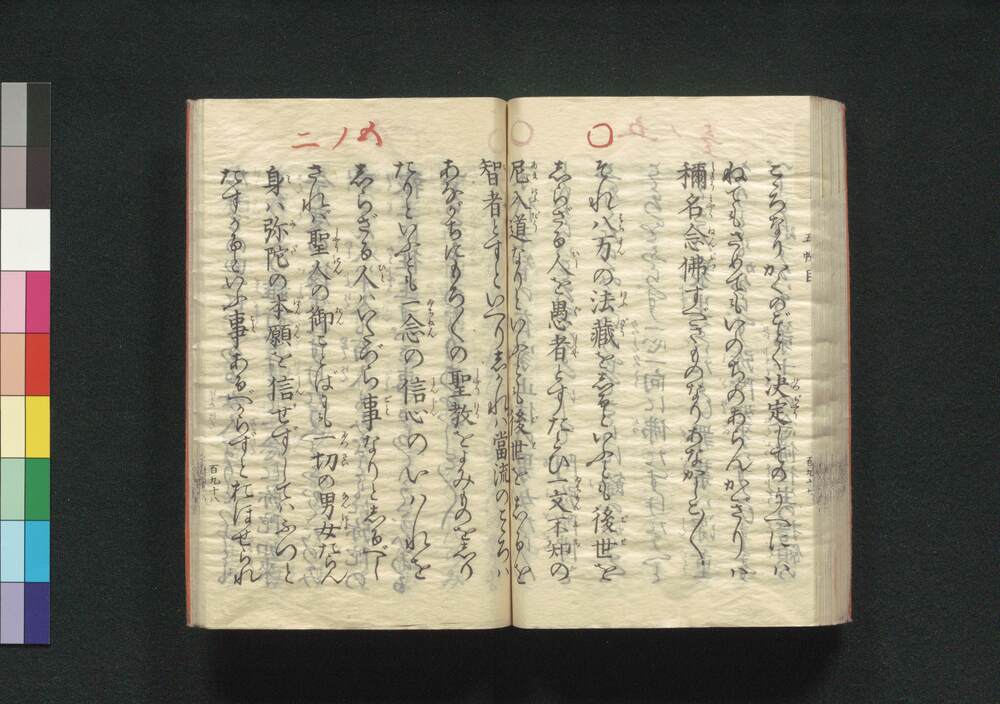 五帖目
こゝろなりかくのごとく決定してのうへには
ねてもさめてもいのちのあらんかぎりは
稱名念佛すべきものなりあなかしこ〳〵
〇
それ八万の法藏をしるといふとも後世を
しらざる人を愚者とすたとひ一文不知の
尼入道なりといふとも後世をしるを
智者とすといへりしかれば當流のこゝろは
あながちにもろ〳〵の聖教をよみものをしり
たりといふとも一念の信心のいはれを
しらざる人はいたづら事なりとしるべし
されば聖人の御ことばにも一切の男女たらん
身は弥陀の本願を信ぜずしてはふつと
たすかるといふ事あるべからずとおほせられ
五ノ二
百九十八